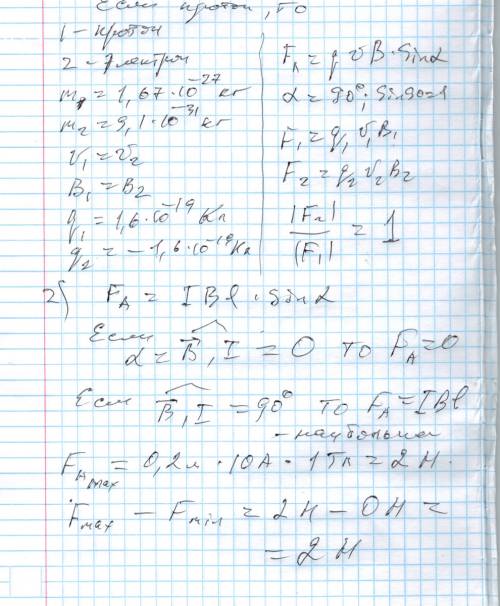 Если протон, то
1 - протон
2 - электрон
m₁ = 1,67·10⁻²⁷ кг
m₂ = 9,1·10⁻³¹ кг
v₁ = v₂
B₁ = B₂
q₁ = 1,6·10⁻¹⁹ Кл
q₂ = -1,6·10⁻¹⁹ Кл
Fл = q v B · sinα
α = 90°; sin90=1
F₁ = q₁ v₁ B₁
F₂ = q₂ v₂ B₂
|F₂| / |F₁| = 1
2) FA = I B l · sinα
Если α = B, I = 0 то FA = 0
Если B, I = 90° то FA = IBl
- наибольшая
FAmax = 0,2м · 10А · 1Тл = 2 Н.
Fmax - Fmin = 2Н - 0Н =
= 2 Н